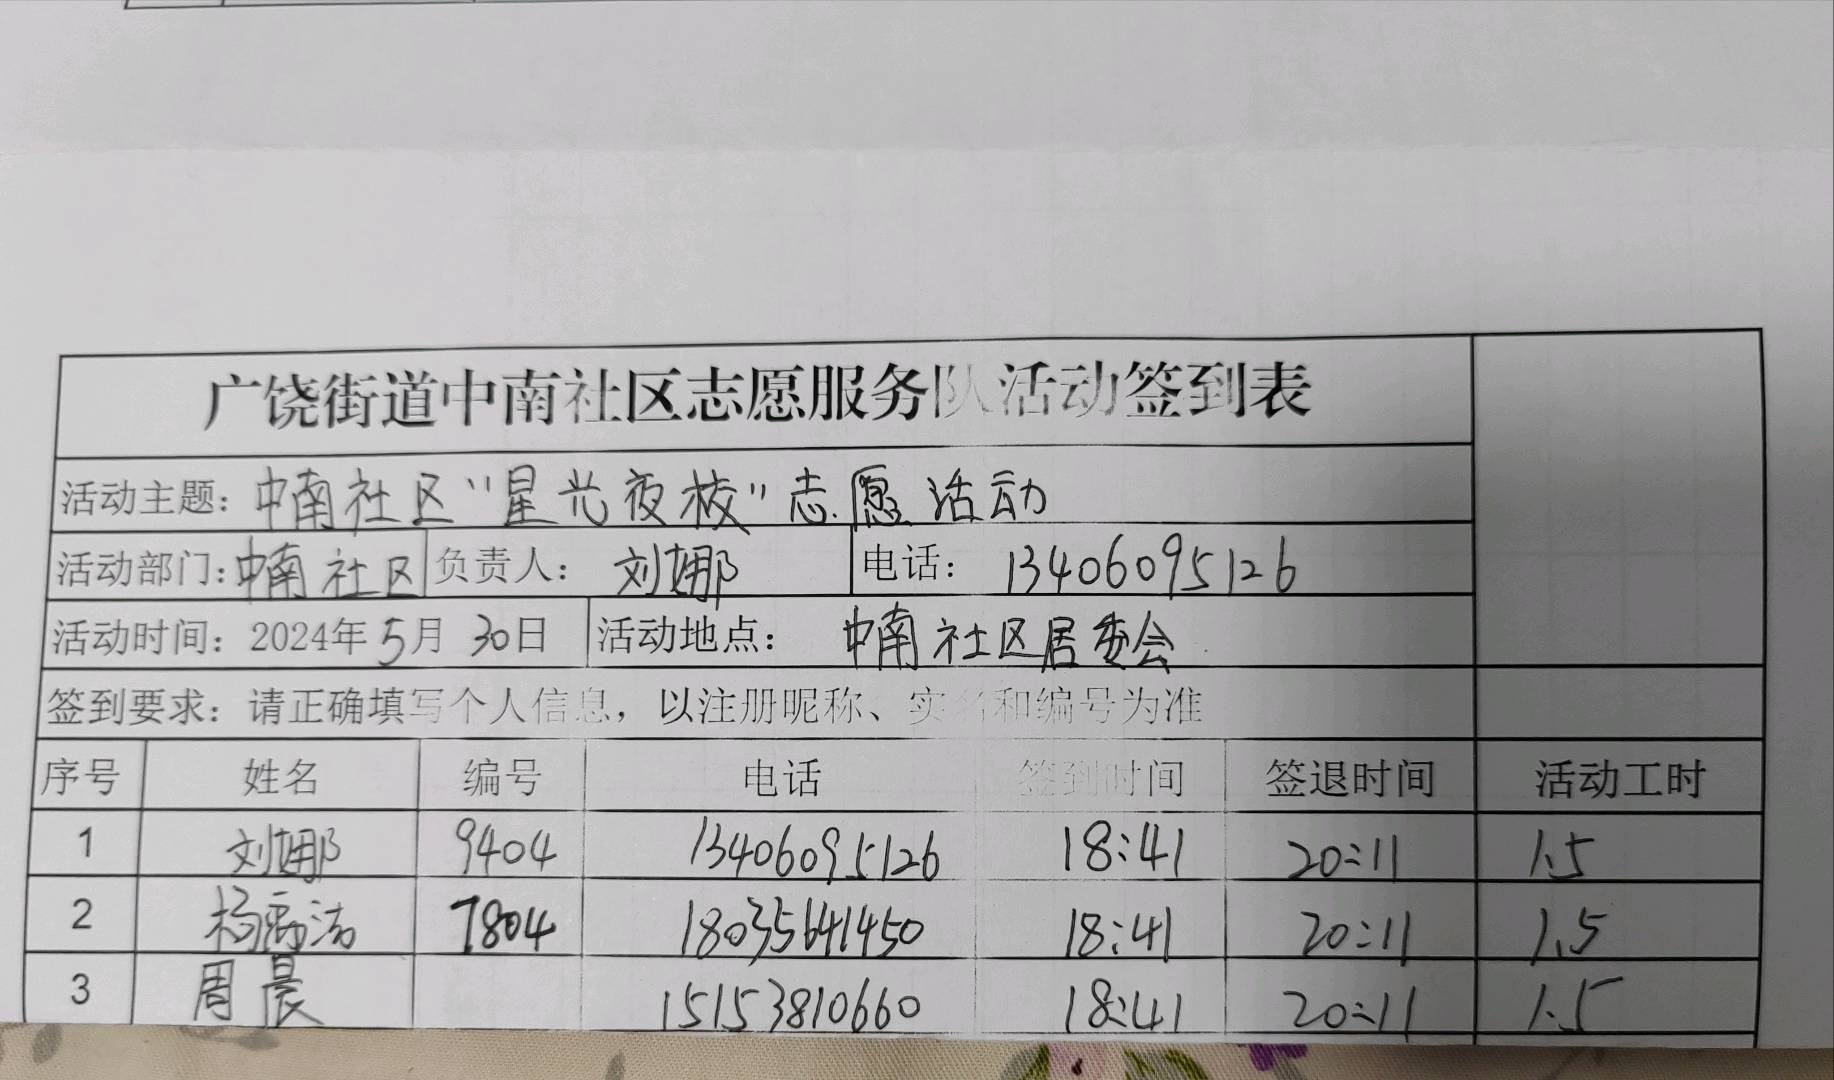 广饶街道中南社区志愿服务队活动签到表
活动主题：中南社区“星光夜校”志愿活动
活动部门：中南社区 负责人：刘娜 电话：13406095126
活动时间：2024年5月30日 活动地点：中南社区居委会
签到要求：请正确填写个人信息，以注册昵称、实名和编号为准
序号 姓名 编号 电话 签到时间 签退时间 活动工时
1 刘娜 9404 13406095126 18:41 20:11 1.5
2 杨洁 7804 18035641450 18:41 20:11 1.5
3 周晨 15153810660 18:41 20:11 1.5